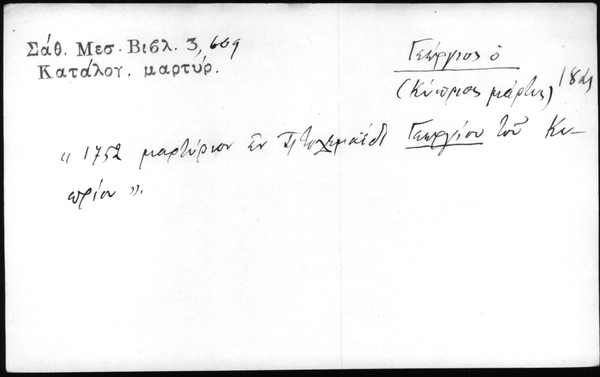 Σάθ. Μεσ. Βιβλ. 3, 609
Κατάλογ. μαρτύρ.
Γεώργιος ὁ
(Κύπριος μάρτυς) 18ος
« 1752 μαρτύριον ἐν Πτολεμαΐδι Γεωργίου τοῦ Κυ-
πρίου ».